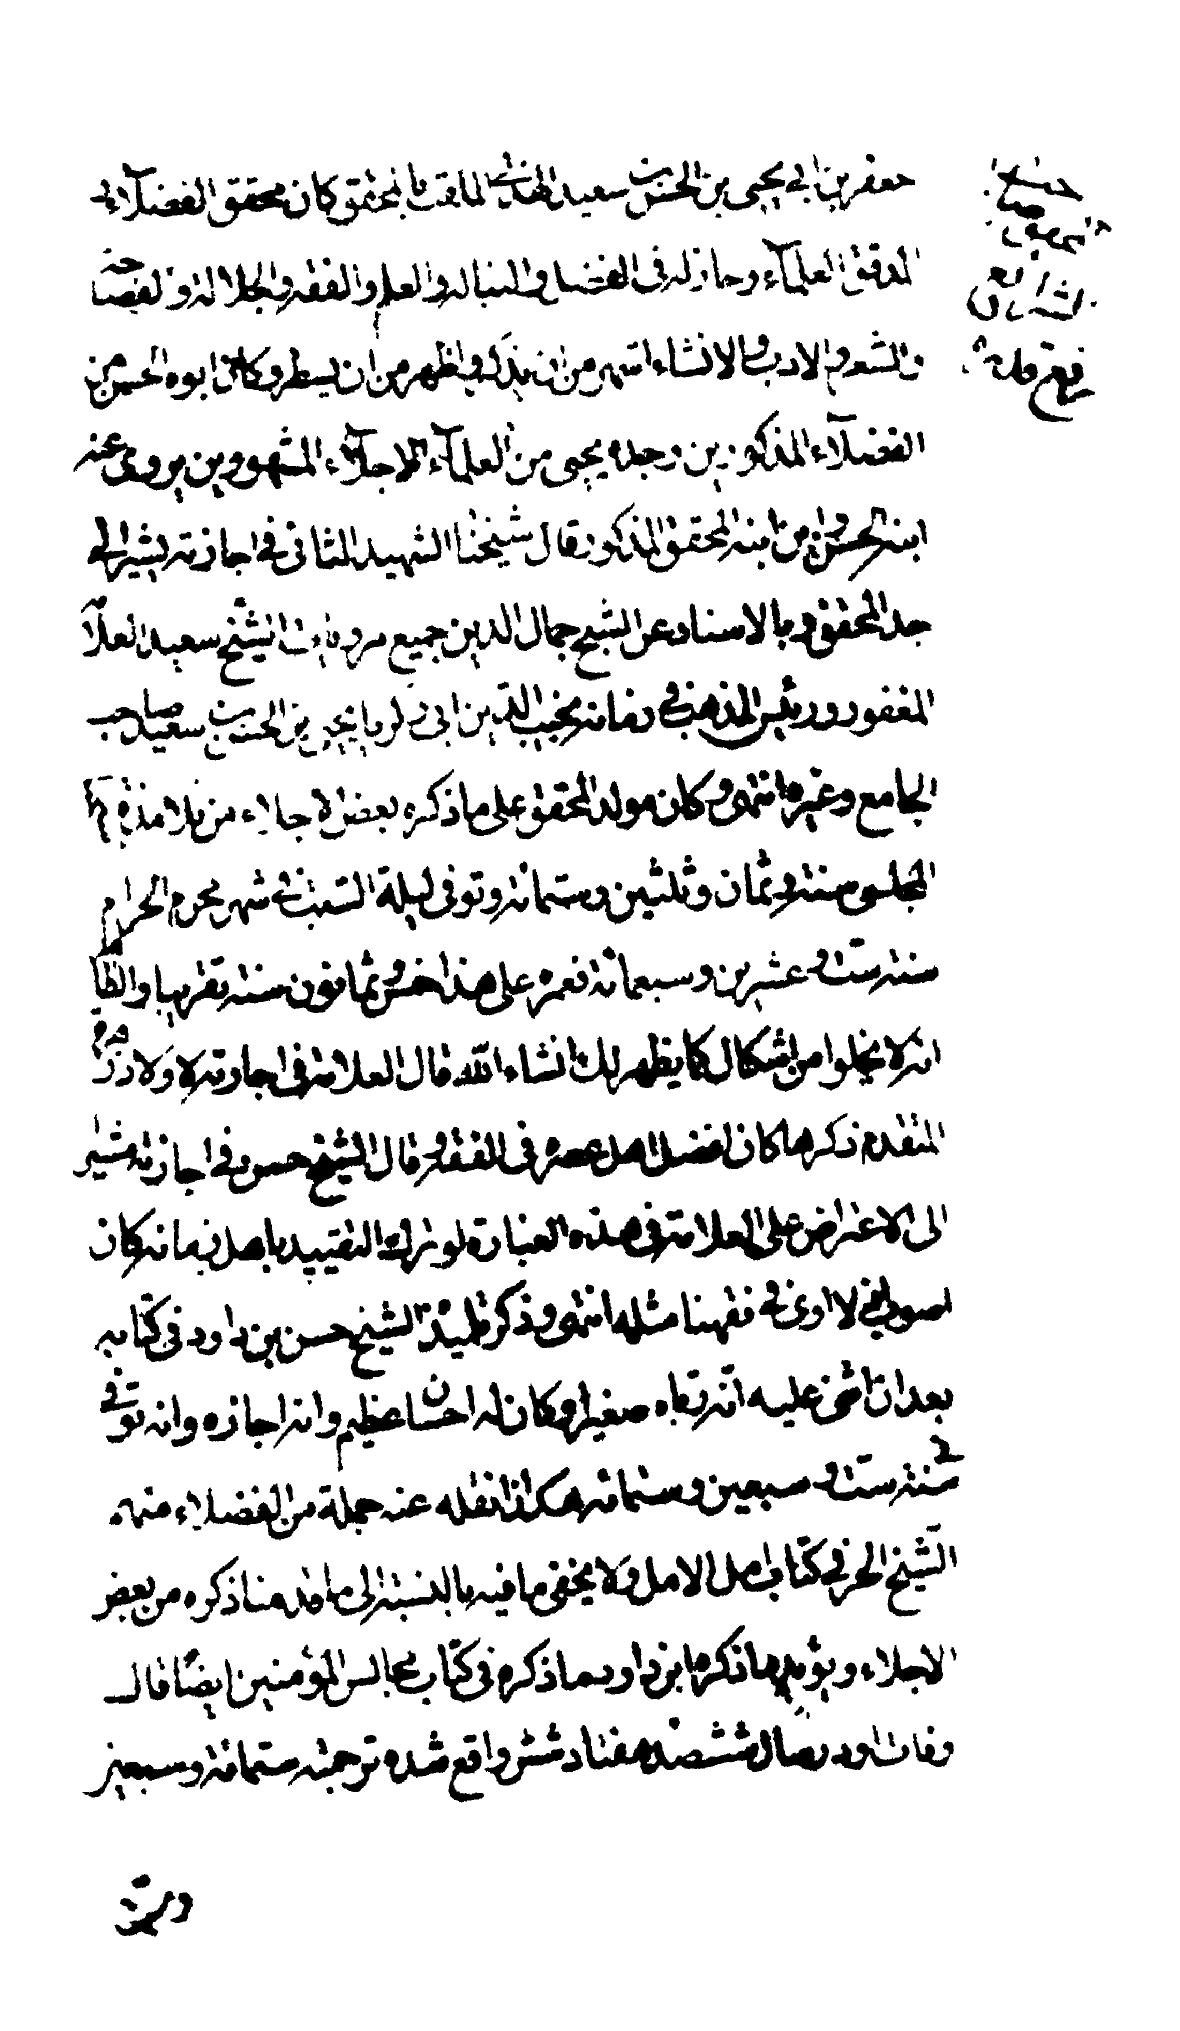 جعفر بن ابي يحيى بن الحسن بن سعيد الهذلي الملقب بالمحقق كان محقق الفضلاء
المدقق العلماء وحاله في الفضل والنبالة والعلم والفقه والجلالة والفصاحة
والشعر والادب والانشاء اشهر من ان يذكر واظهر من ان يسطر وكان ابوه الحسن من
الفضلاء المذكورين وجده يحيى من العلماء الاجلاء المشهورين يروى عنه
ابنه الحسن وابن ابنه المحقق المذكور قال شيخنا الشهيد الثاني في اجازته يشير الى
جد المحقق وبالاسناد عن الشيخ جمال الدين جميع مرويات الشيخ سعيد العلامة
المغفور ورئيس المذهب في زمانه نجيب الدين ابى زكريا يحيى بن الحسن بن سعيد صاحب
الجامع وغيره انتهى وكان مولد المحقق على ما ذكره بعض الاجلاء من تلامذة
المجلسى سنة وثمان وثلثين وستمائة وتوفى ليلة السبت في شهر محرم الحرام
سنة ست وعشرين وسبعمائة فعمره على هذا خمس وثمانون سنة تقريبا والظاهر
انه لا يخلوا من اشكال كما يظهر لك انشاء الله قال العلامة في اجازته لاولاد زهره
المتقدم ذكرها كان افضل اهل عصره في الفقه وقال الشيخ حسن في اجازته مشير
الى الاعتراض على العلامة في هذه العبارة لو ترك التقييد باهل زمانه كان
اصوب اذ لا ارى في فقهنا مثله انتهى وذكر تلميذه الشيخ حسن بن داود في كتابه
بعد ان اثنى عليه انه رباه صغيرا وكان له احسان عظيم وانه اجازه وانه توفي
في سنة ست وسبعين وستمائة هكذا نقله عنه جملة من الفضلاء منهم
الشيخ الحر في كتاب امل الامل ولا يخفى ما فيه بالنسبة الى ما قدمنا ذكره من بعض
الاجلاء ويؤيد ما ذكره ابن داود ما ذكره في كتاب مجالس المؤمنين ايضا قال
وفات او در سال ششصد هفتاد شش واقع شده ترجمته ستمائة وسبعين
وست